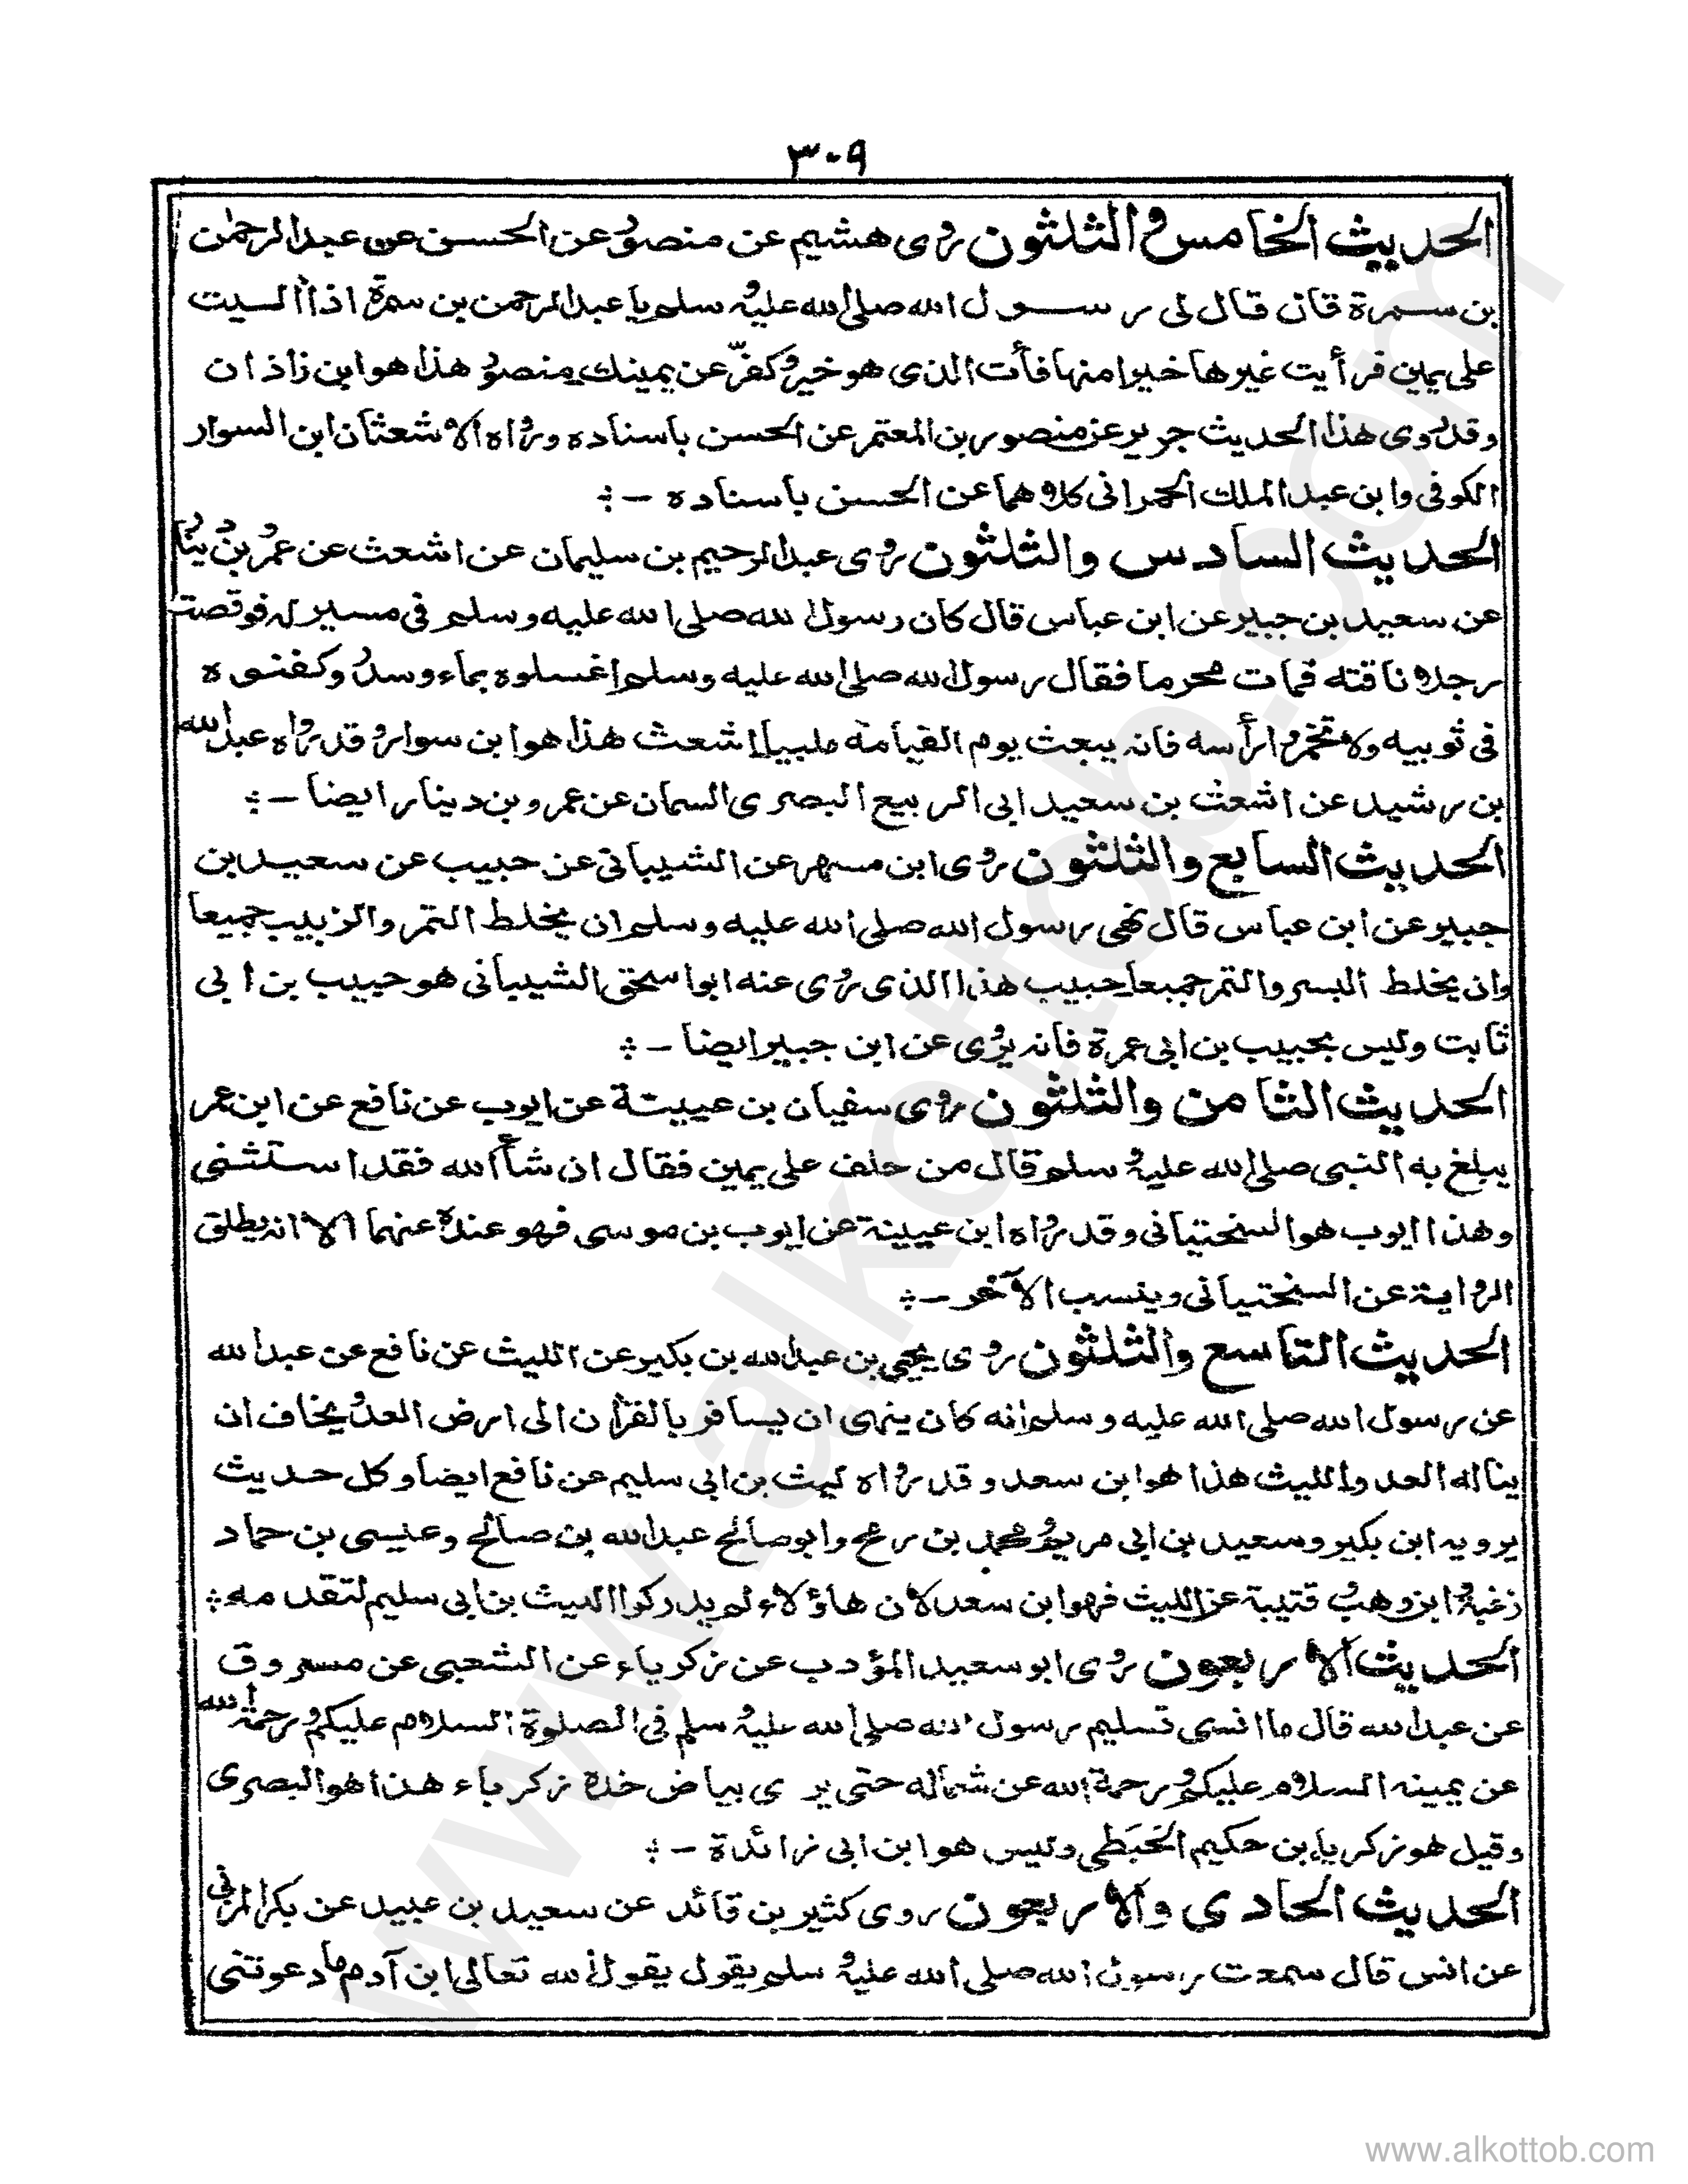 ٣٠٩
الحديث الخامس والثلثون روى هشيم عن منصور عن الحسن عن عبد الرحمٰن
بن سمرة قان قال لى رسول الله صلى الله عليه وسلم يا عبد الرحمن بن سمرة اذا آليت
على يمين فرأيت غيرها خيرا منها فأت الذى هو خير وكفّر عن يمينك منصور هذا هو ابن زاذان
وقد روى هذا الحديث جرير عن منصور بن المعتمر عن الحسن بأسناده ورواه الاشعثان ابن السوار
الكوفى وابن عبد الملك الحمرانى كلاهما عن الحسن بأسناده -
الحديث السادس والثلثون روى عبد الرحيم بن سليمان عن اشعث عن عمرو بن دينار
عن سعيد بن جبير عن ابن عباس قال كان رسول الله صلى الله عليه وسلم فى مسير له فوقصت
رجلا ناقته فمات محرما فقال رسول الله صلى الله عليه وسلم اغسلوه بماء وسدر وكفنوه
فى ثوبيه ولا تخمروا رأسه فانه يبعث يوم القيامة ملبيا اشعث هذا هو ابن سوار وقد رواه عبد الله
بن رشيد عن اشعث بن سعيد ابى الربيع البصرى السمان عن عمرو بن دينار ايضا -
الحديث السابع والثلثون روى ابن مسهر عن الشيبانى عن حبيب عن سعيد بن
جبير عن ابن عباس قال نهى رسول الله صلى الله عليه وسلم ان يخلط التمر والزبيب جميعا
وان يخلط البسر والتمر جميعا حبيب هذا الذى روى عنه ابو اسحق الشيبانى هو حبيب بن ابى
ثابت وليس بحبيب بن ابى عمرة فانه يروى عن ابن جبير ايضا -
الحديث الثامن والثلثون روى سفيان بن عيينة عن ايوب عن نافع عن ابن عمر
يبلغ به النبى صلى الله عليه وسلم قال من حلف على يمين فقال ان شاء الله فقد استثنى
وهذا ايوب هو السختيانى وقد رواه ابن عيينة عن ايوب بن موسى فهو عنده عنهما الا انه يطلق
الرواية عن السختيانى وينسب الآخر -
الحديث التاسع والثلثون روى يحيى بن عبد الله بن بكير عن الليث عن نافع عن عبد الله
عن رسول الله صلى الله عليه وسلم انه كان ينهى ان يسافر بالقرأن الى ارض العدو يخاف ان
يناله العدو الليث هذا هو ابن سعد وقد رواه ليث بن ابى سليم عن نافع ايضا وكل حديث
يرويه ابن بكير وسعيد بن ابى مريم ومحمد بن رمح وابو صالح عبد الله بن صالح وعيسى بن حماد
زغبة وابن وهب وقتيبة عن الليث فهو ابن سعد لان هاؤلاء لم يدركوا الليث بن ابى سليم لتقدمه
الحديث الاربعون روى ابو سعيد المؤدب عن زكرياء عن الشعبى عن مسروق
عن عبد الله قال ما انسى تسليم رسول الله صلى الله عليه وسلم فى الصلوة السلام عليكم ورحمة الله
عن يمينه السلام عليكم ورحمة الله عن شماله حتى يرى بياض خده زكرياء هذا هو البصرى
وقيل هو زكريا بن حكيم الحَبَطى وليس هو ابن ابى زائدة -
الحديث الحادى والاربعون روى كثير بن قائد عن سعيد بن عبيد عن بكر المزنى
عن انس قال سمعت رسول الله صلى الله عليه وسلم يقول يقول الله تعالى ابن آدم ما دعوتنى
www.alkottob.com
www.alkottob.com